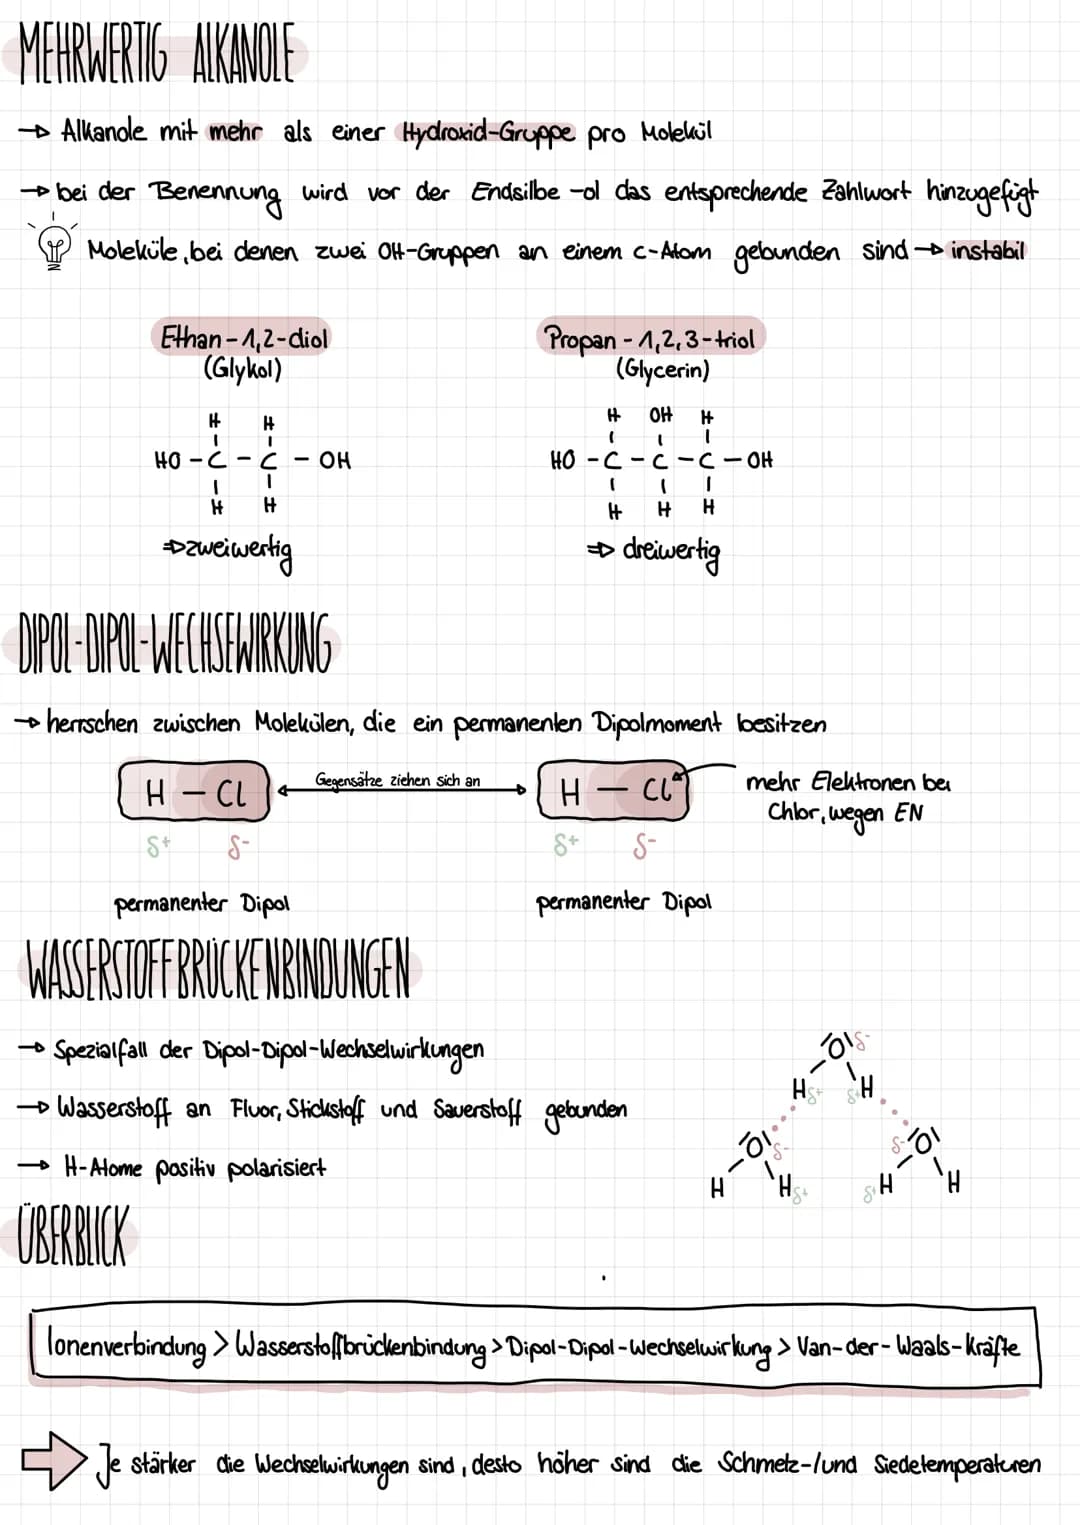 MEHRWERTIG ALKANOLE
→ Alkanole mit mehr als einer Hydroxid-Gruppe pro Molekül
→ bei der Benennung wird vor der Endsilbe -ol das entsprechende Zahlwort hinzugefügt
Moleküle, bei denen zwei OH-Gruppen an einem C-Atom gebunden sind → instabil
Ethan-1,2-diol
(Glykol)
H H
HO - C - C - OH
H H
⇒ zweiwertig
Propan-1,2,3-triol
(Glycerin)
H OH H
HO - C - C - C - OH
H H H
⇒ dreiwertig
DIPOL-DIPOL-WECHSEWIRKUNG
→ herrschen zwischen Molekülen, die ein permanenten Dipolmoment besitzen
H - Cl
Gegensätze ziehen sich an
H - Cl
mehr Elektronen bei
Chlor, wegen EN
δ+ δ-
δ+ δ-
permanenter Dipol
permanenter Dipol
WASSERSTOFFBRÜCKENBINDUNGEN
→ Spezialfall der Dipol-Dipol-Wechselwirkungen
→ Wasserstoff an Fluor, Stickstoff und Sauerstoff gebunden
→ H-Atome positiv polarisiert
O δ-
H δ+ δ+ H
O δ- δ- O
H H δ+ δ+ H H
ÜBERBLICK
Ionenverbindung > Wasserstoffbrückenbindung > Dipol-Dipol-Wechselwirkung > Van-der-Waals-Kräfte
Je stärker die Wechselwirkungen sind, desto höher sind die Schmelz-/und Siedetemperaturen